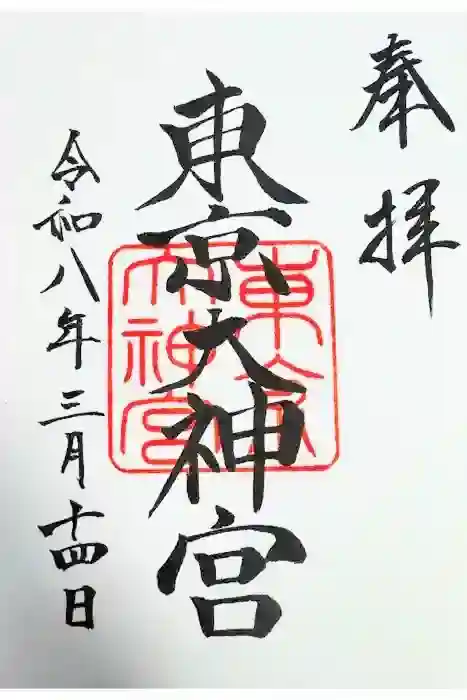 奉拝
東京大神宮
東京
大神宮
令和八年三月十四日